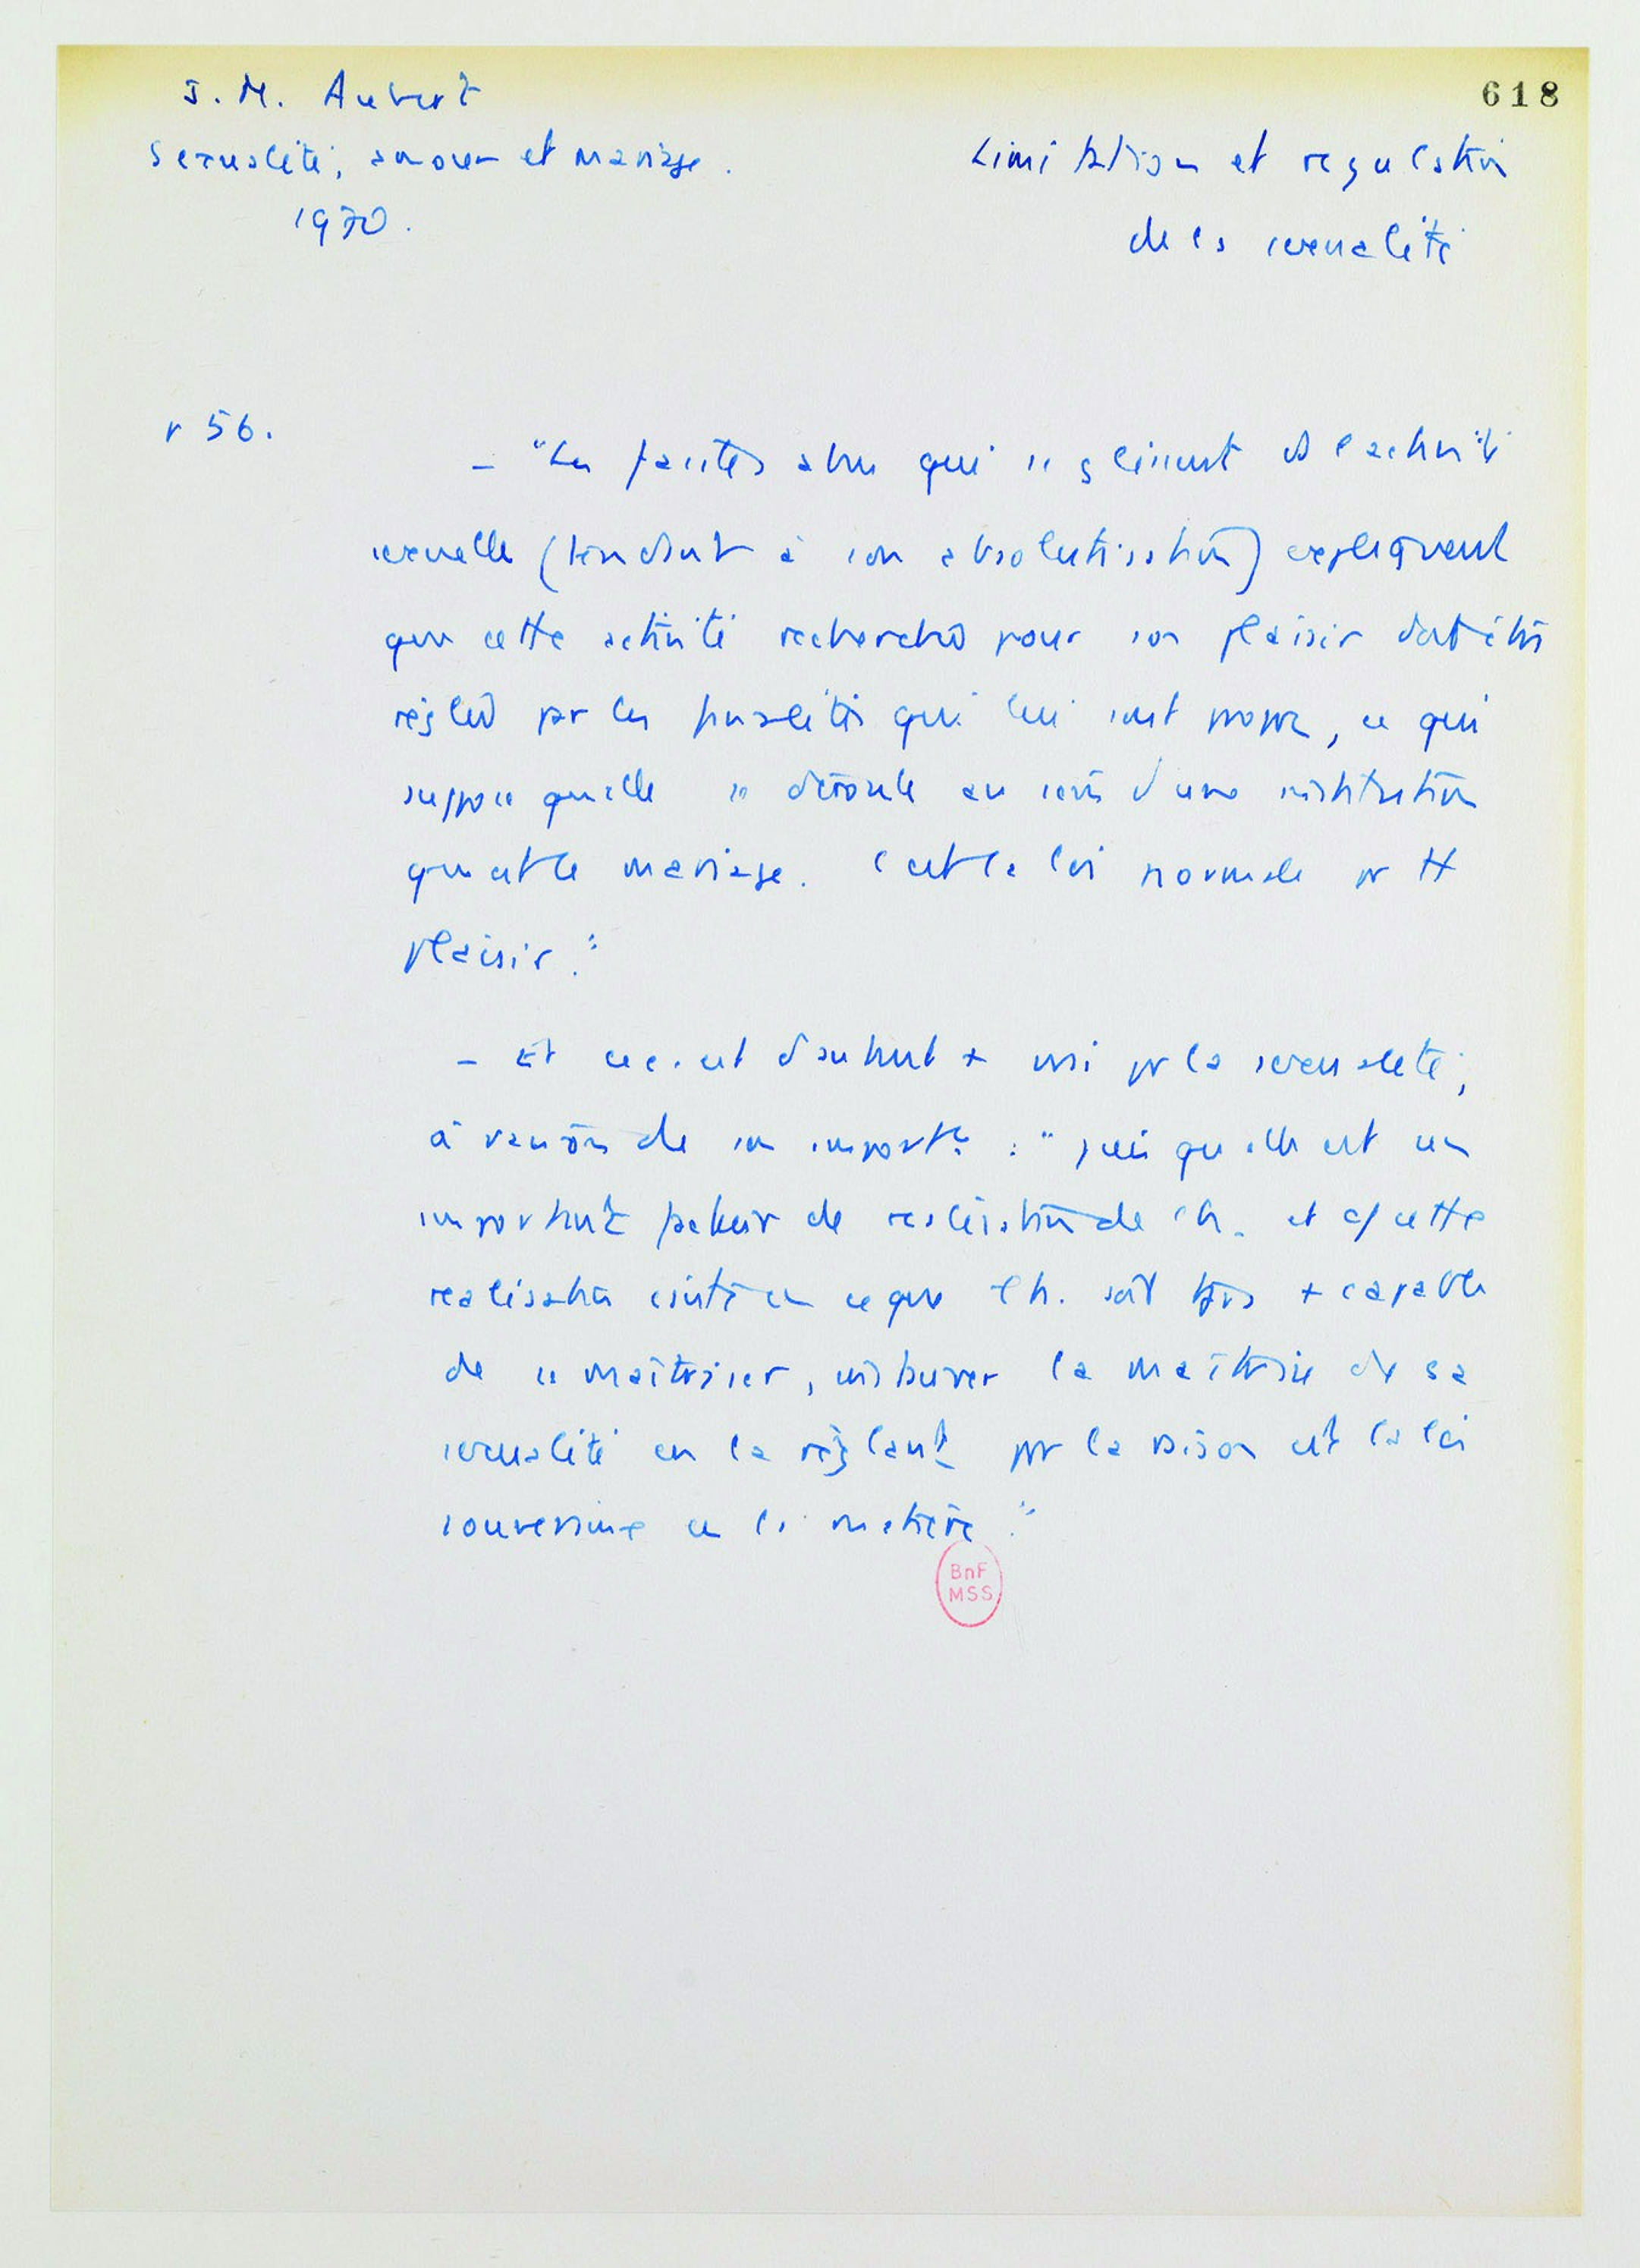 J. M. Aubert
618
Sexualité, amour et mariage.
Limitation et regulation
1970.
de la sexualité
p 56.
- "Les faciles abus qui se glissent ds l'activité
sexuelle (tendant à son absolutisation) expliquent
que cette activité recherchée pour son plaisir doit être
réglée par les finalités qui lui sont propres, ce qui
suppose qu'elle se déroule au sein d'une institution
qui est le mariage. C'est la loi normale pr tt
plaisir."
- Et ceci est d'autant + vrai pr la sexualité,
à raison de son importce : "puisqu'elle est un
important facteur de réalisation de l'h. et q/ cette
réalisation consiste en ce que l'h. soit tjrs + capable
de se maîtriser, instaurer la maîtrise de sa
sexualité en la réglant par la raison est la loi
souveraine en la matière."
BnF
MSS